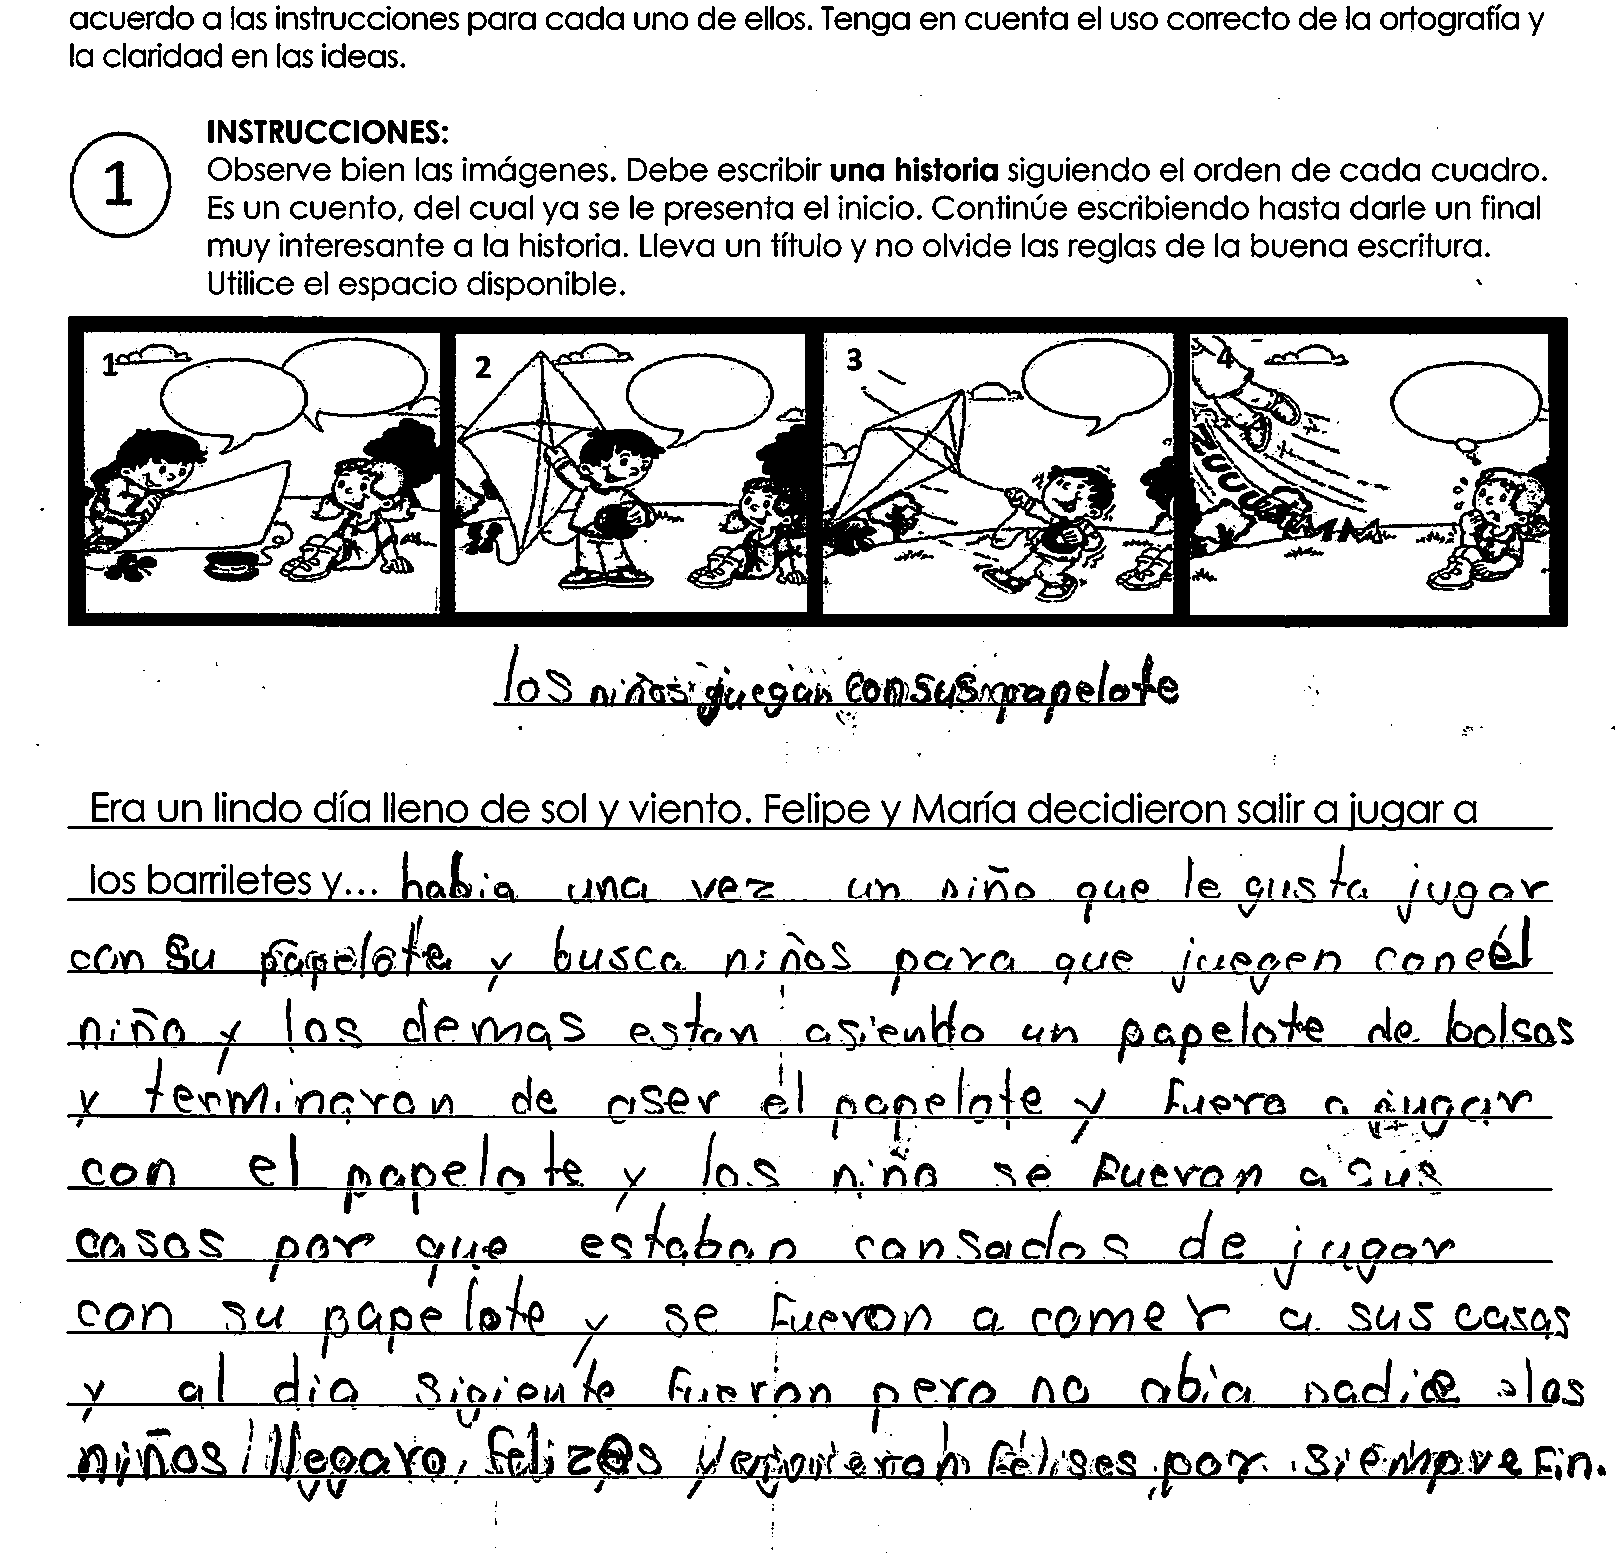 acuerdo a las instrucciones para cada uno de ellos. Tenga en cuenta el uso correcto de la ortografía y
la claridad en las ideas.
1
INSTRUCCIONES:
Observe bien las imágenes. Debe escribir una historia siguiendo el orden de cada cuadro.
Es un cuento, del cual ya se le presenta el inicio. Continúe escribiendo hasta darle un final
muy interesante a la historia. Lleva un título y no olvide las reglas de la buena escritura.
Utilice el espacio disponible.
1 2 3 4
los niños juegan con sus papelote
Era un lindo día lleno de sol y viento. Felipe y María decidieron salir a jugar a
los barriletes y... habia una vez un niño que le gusta jugar
con su papelote y busca niños para que juegen con él
niño y los demas estan asiendo un papelote de bolsas
y terminaron de aser el papelote y fuero a jugar
con el papelote y los niño se fueron a sus
casas por que estaban cansados de jugar
con su papelote y se fueron a comer a sus casas
y al dia sigiente fueron pero no abia nadie los
niños llegaro felizes y felises por siempre Fin.